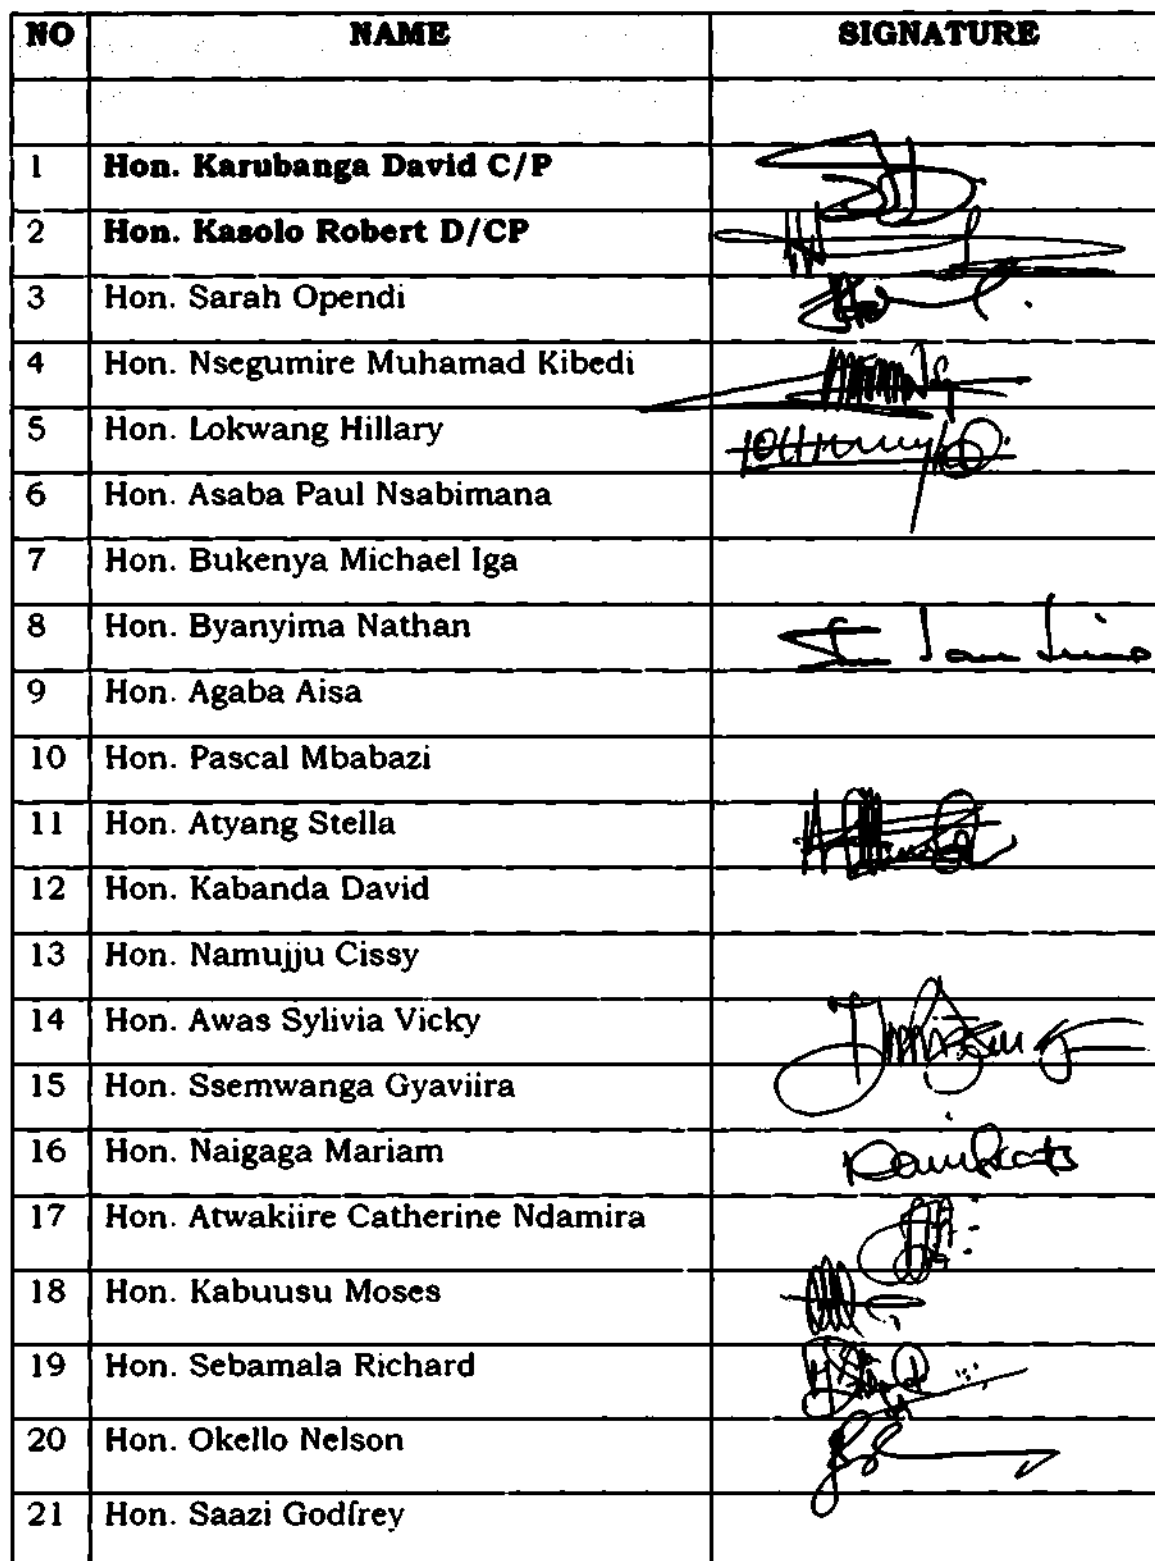 NO NAME SIGNATURE
1 Hon. Karubanga David C/P
2 Hon. Kasolo Robert D/CP
3 Hon. Sarah Opendi
4 Hon. Nsegumire Muhamad Kibedi
5 Hon. Lokwang Hillary
6 Hon. Asaba Paul Nsabimana
7 Hon. Bukenya Michael Iga
8 Hon. Byanyima Nathan
9 Hon. Agaba Aisa
10 Hon. Pascal Mbabazi
11 Hon. Atyang Stella
12 Hon. Kabanda David
13 Hon. Namujju Cissy
14 Hon. Awas Sylivia Vicky
15 Hon. Ssemwanga Gyaviira
16 Hon. Naigaga Mariam
17 Hon. Atwakiire Catherine Ndamira
18 Hon. Kabuusu Moses
19 Hon. Sebamala Richard
20 Hon. Okello Nelson
21 Hon. Saazi Godfrey